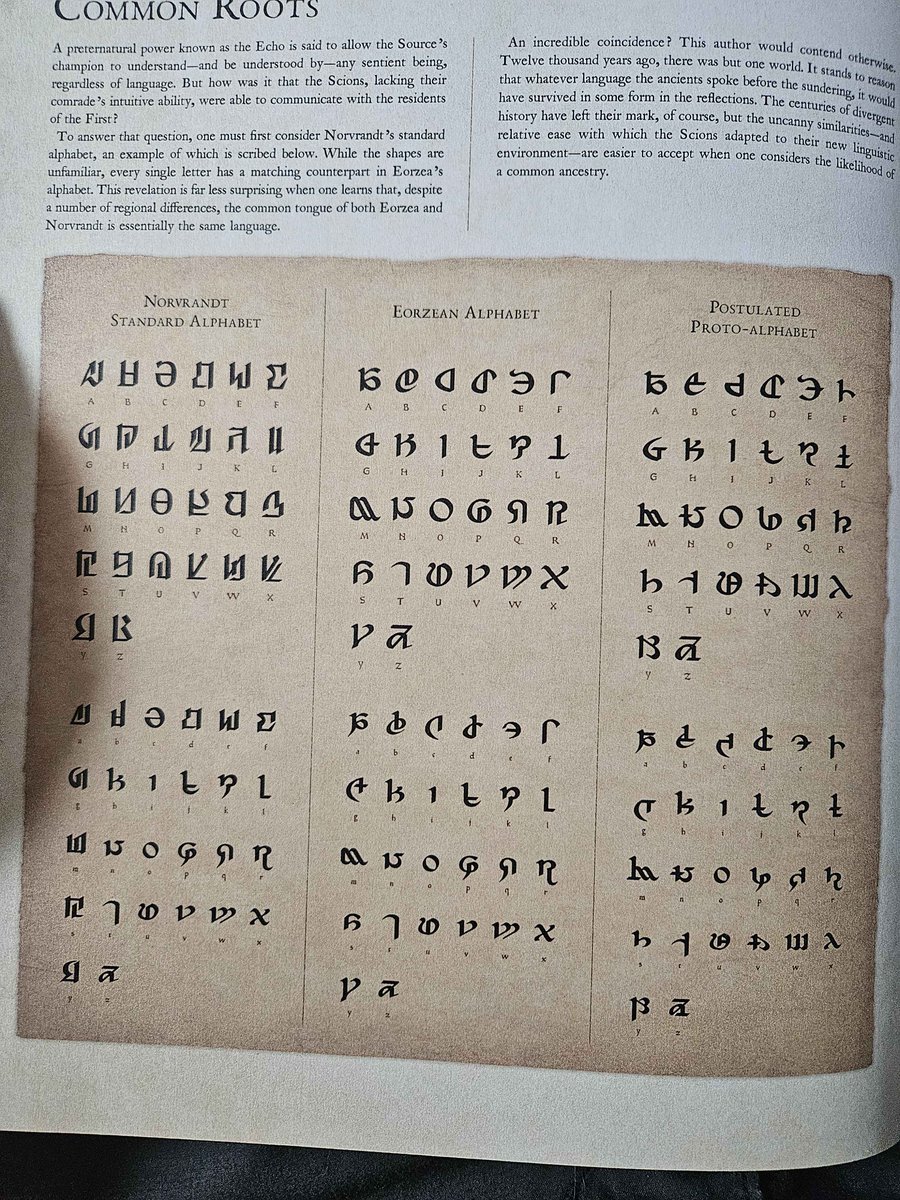 COMMON ROOTS
A preternatural power known as the Echo is said to allow the Source's
champion to understand—and be understood by—any sentient being,
regardless of language. But how was it that the Scions, lacking their
comrade's intuitive ability, were able to communicate with the residents
of the First?
To answer that question, one must first consider Norvrandt's standard
alphabet, an example of which is scribed below. While the shapes are
unfamiliar, every single letter has a matching counterpart in Eorzea's
alphabet. This revelation is far less surprising when one learns that, despite
a number of regional differences, the common tongue of both Eorzea and
Norvrandt is essentially the same language.
An incredible coincidence? This author would contend otherwise.
Twelve thousand years ago, there was but one world. It stands to reason
that whatever language the ancients spoke before the sundering, it would
have survived in some form in the reflections. The centuries of divergent
history have left their mark, of course, but the uncanny similarities—and
relative ease with which the Scions adapted to their new linguistic
environment—are easier to accept when one considers the likelihood of
a common ancestry.
NORVRANDT
STANDARD ALPHABET
A B C D E F
G H I J K L
M N O P Q R
S T U V W X
Y Z
a b c d e f
g h i j k l
m n o p q r
s t u v w x
y z
EORZEAN ALPHABET
A B C D E F
G H I J K L
M N O P Q R
S T U V W X
Y Z
a b c d e f
g h i j k l
m n o p q r
s t u v w x
y z
POSTULATED
PROTO-ALPHABET
A B C D E F
G H I J K L
M N O P Q R
S T U V W X
Y Z
a b c d e f
g h i j k l
m n o p q r
s t u v w x
y z